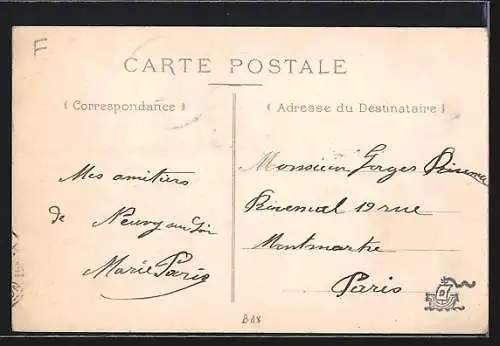 F
CARTE POSTALE
(Correspondance)
(Adresse du Destinataire)
Mes amitiers
de Neuvy
Marie Paris
Monsieur Gorges
19 rue
Montmartre
Paris
B88